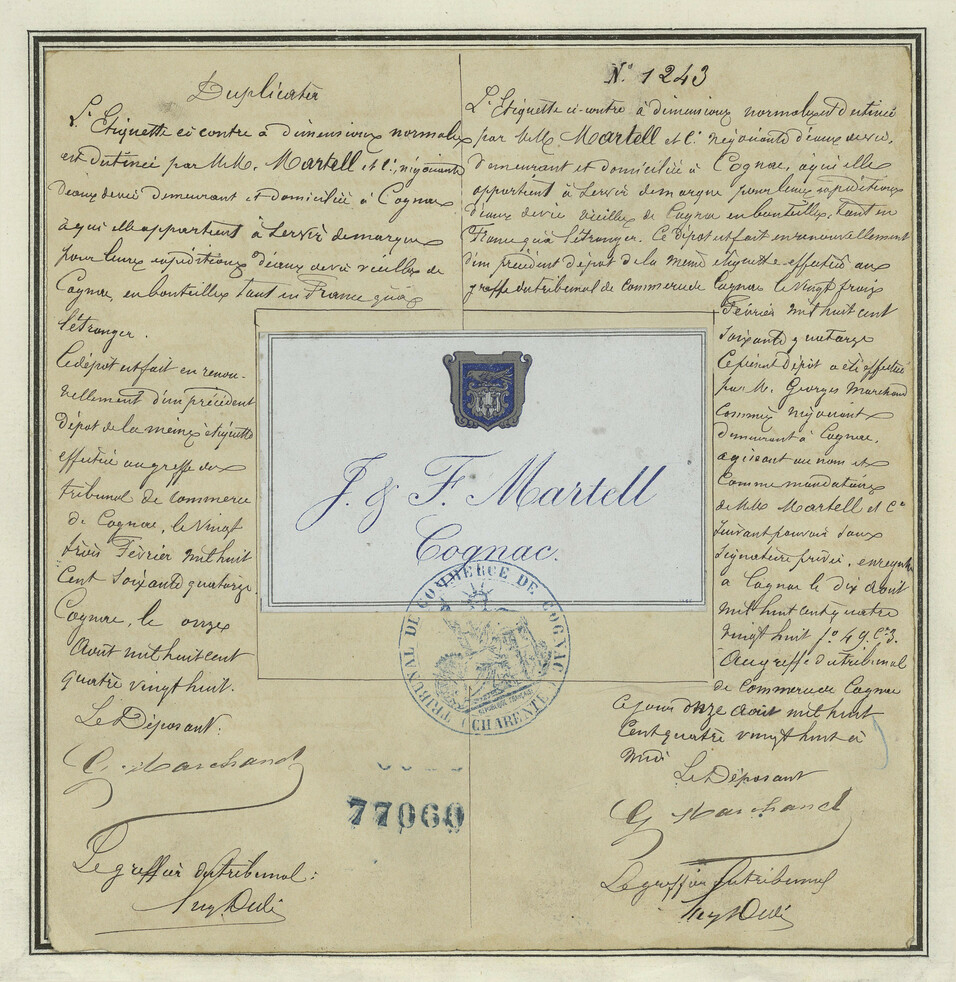 Duplicata
L'Etiquette ci contre à dimensions normales
est destinée par M.M. Martell et Cie, négociants
d'eaux de vie demeurant et domiciliés à Cognac
à qui elle appartient à servir de marque
pour leurs expéditions d'eaux de vie vieilles de
Cognac, en bouteilles tant en France qu'à
l'étranger.
Ce dépôt est fait en renou-
vellement d'un précédent
dépôt de la même étiquette
effectué au greffe du
tribunal de commerce
de Cognac, le vingt
trois Février mil huit
cent soixante quatorze.
Cognac, le onze
Août mil huit cent
quatre vingt huit.
Le Déposant:
G. Marchand
Le greffier du tribunal:
N° 1243
L'Etiquette ci-contre à dimensions normales est destinée
par M.M. Martell et Cie négociants d'eaux de vie,
demeurant et domiciliés à Cognac, à qui elle
appartient à servir de marque pour leurs expéditions
d'eaux de vie vieilles de Cognac en bouteilles, tant en
France qu'à l'étranger. Ce dépôt est fait en renouvellement
d'un précédent dépôt de la même étiquette effectué au
greffe du tribunal de commerce de Cognac le vingt trois
Février mil huit cent
soixante quatorze
Ce présent dépôt a été effectué
par M. Georges Marchand
Commis négociant
demeurant à Cognac,
agissant au nom et
comme mandataire
de M.M. Martell et Cie
suivant pouvoir sous
signature privée, enregistré
à Cognac le dix août
mil huit cent quatre
vingt huit fo 49 Ce 3.
Au greffe du tribunal
de Commerce de Cognac
ce jour onze août mil huit
cent quatre vingt huit à
midi
Le Déposant
G Marchand
Le greffier du tribunal
J. & F. Martell
Cognac.
TRIBUNAL DE COMMERCE DE COGNAC
(CHARENTE)
RÉPUBLIQUE FRANÇAISE
77060